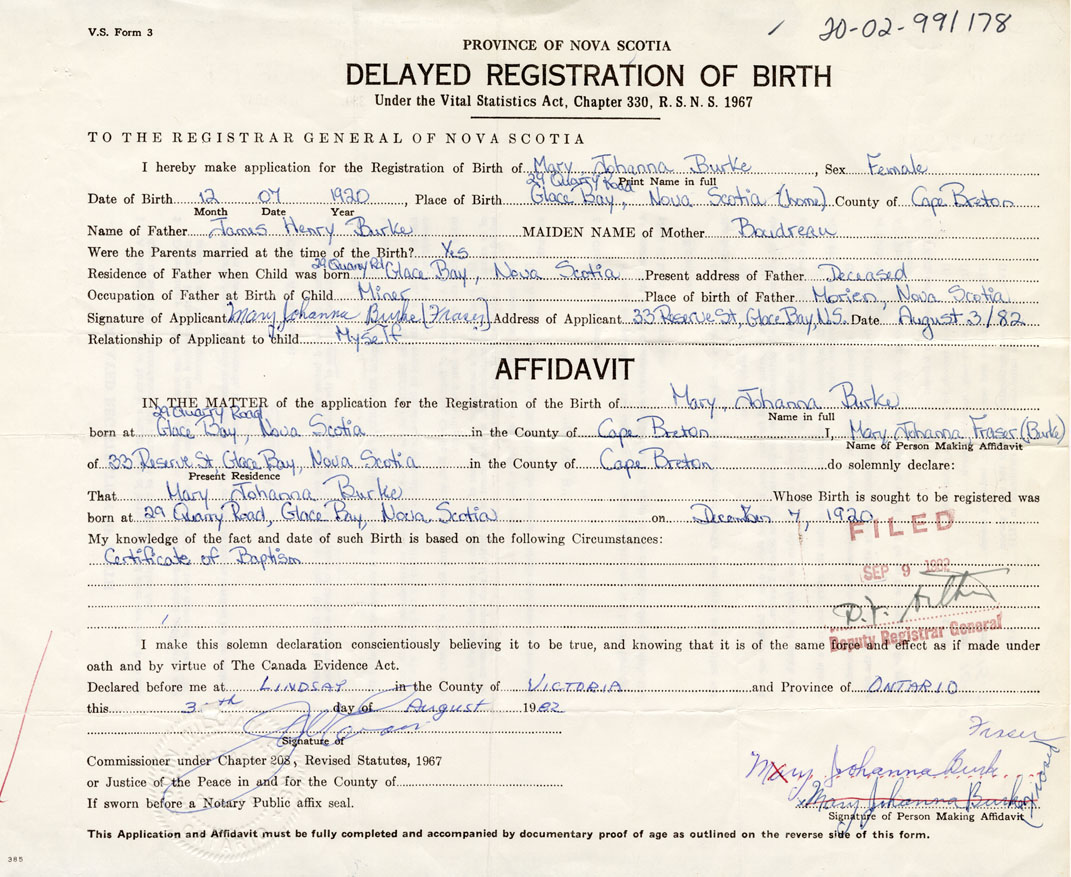 V.S. Form 3
20-02-99/178
PROVINCE OF NOVA SCOTIA
DELAYED REGISTRATION OF BIRTH
Under the Vital Statistics Act, Chapter 330, R.S.N.S. 1967
TO THE REGISTRAR GENERAL OF NOVA SCOTIA
I hereby make application for the Registration of Birth of Mary Johanna Burke, Sex Female
29 Quarry Road Print Name in full
Date of Birth 12 07 1920, Place of Birth Glace Bay, Nova Scotia (home) County of Cape Breton
Month Date Year
Name of Father James Henry Burke MAIDEN NAME of Mother Boudreau
Were the Parents married at the time of the Birth? Yes
29 Quarry Rd
Residence of Father when Child was born Glace Bay, Nova Scotia Present address of Father Deceased
Occupation of Father at Birth of Child Miner Place of birth of Father Morien, Nova Scotia
Signature of Applicant Mary Johanna Burke [Fraser] Address of Applicant 33 Reserve St, Glace Bay, N.S. Date August 3/82
Relationship of Applicant to Child Myself
AFFIDAVIT
IN THE MATTER of the application for the Registration of the Birth of Mary Johanna Burke
29 Quarry Road Name in full
born at Glace Bay, Nova Scotia in the County of Cape Breton I, Mary Johanna Fraser (Burke)
Name of Person Making Affidavit
of 33 Reserve St, Glace Bay, Nova Scotia in the County of Cape Breton do solemnly declare:
Present Residence
That Mary Johanna Burke Whose Birth is sought to be registered was
born at 29 Quarry Road, Glace Bay, Nova Scotia on December 7, 1920
FILED
My knowledge of the fact and date of such Birth is based on the following Circumstances:
Certificate of Baptism
SEP 9 1982
Deputy Registrar General
I make this solemn declaration conscientiously believing it to be true, and knowing that it is of the same force and effect as if made under
oath and by virtue of The Canada Evidence Act.
Declared before me at LINDSAY in the County of VICTORIA and Province of ONTARIO
this 3th day of August 1982
Signature of
Fraser
Commissioner under Chapter 208, Revised Statutes, 1967
Mary Johanna Burk
or Justice of the Peace in and for the County of
Mary Johanna Burke
If sworn before a Notary Public affix seal.
Signature of Person Making Affidavit
This Application and Affidavit must be fully completed and accompanied by documentary proof of age as outlined on the reverse side of this form.
385